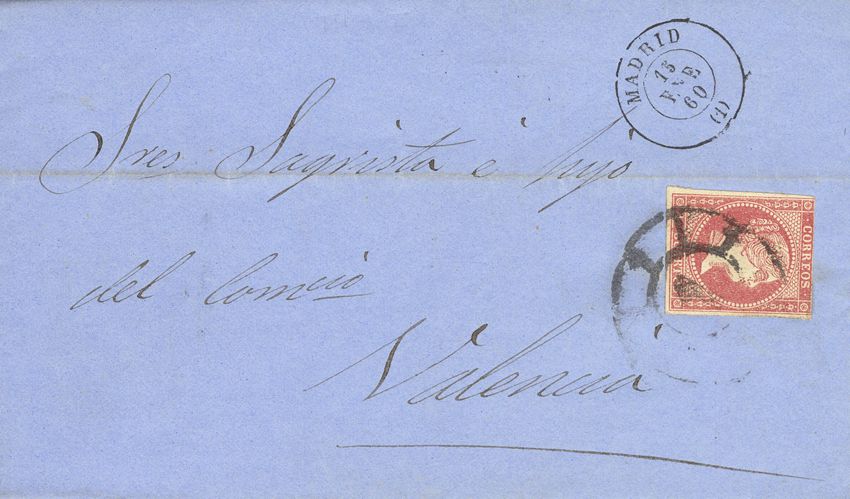 MADRID
15
FEB
60
(1)
Sres Sagrista é hijo
CORREOS
del Comcio
Valencia